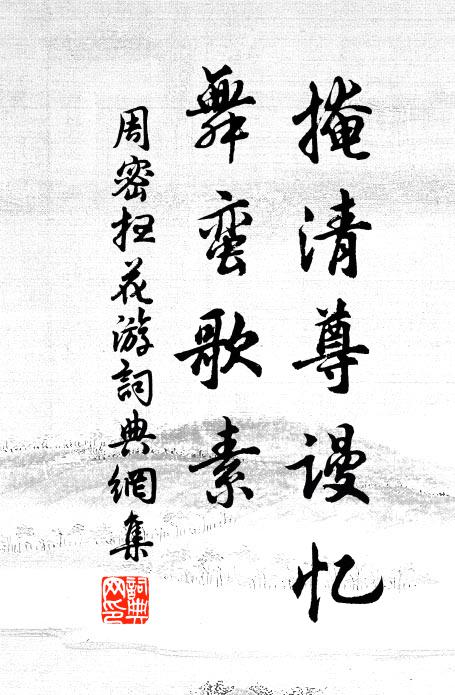 掩清尊谩忆
舞蛮歌素
周密扫花游詞典網集
詞典网印